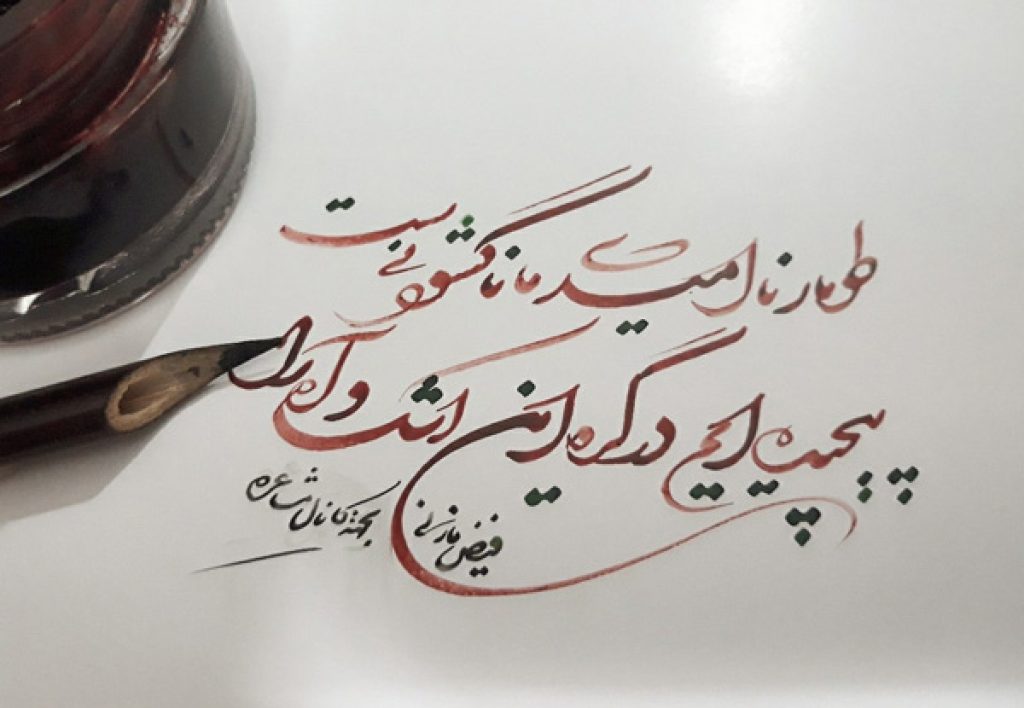 طومار ناامیدی ما ناگشودنی ست
پیچیده ایم در گره این اشک و آه را
فیض مازنی
بجهة کانال مشاعره